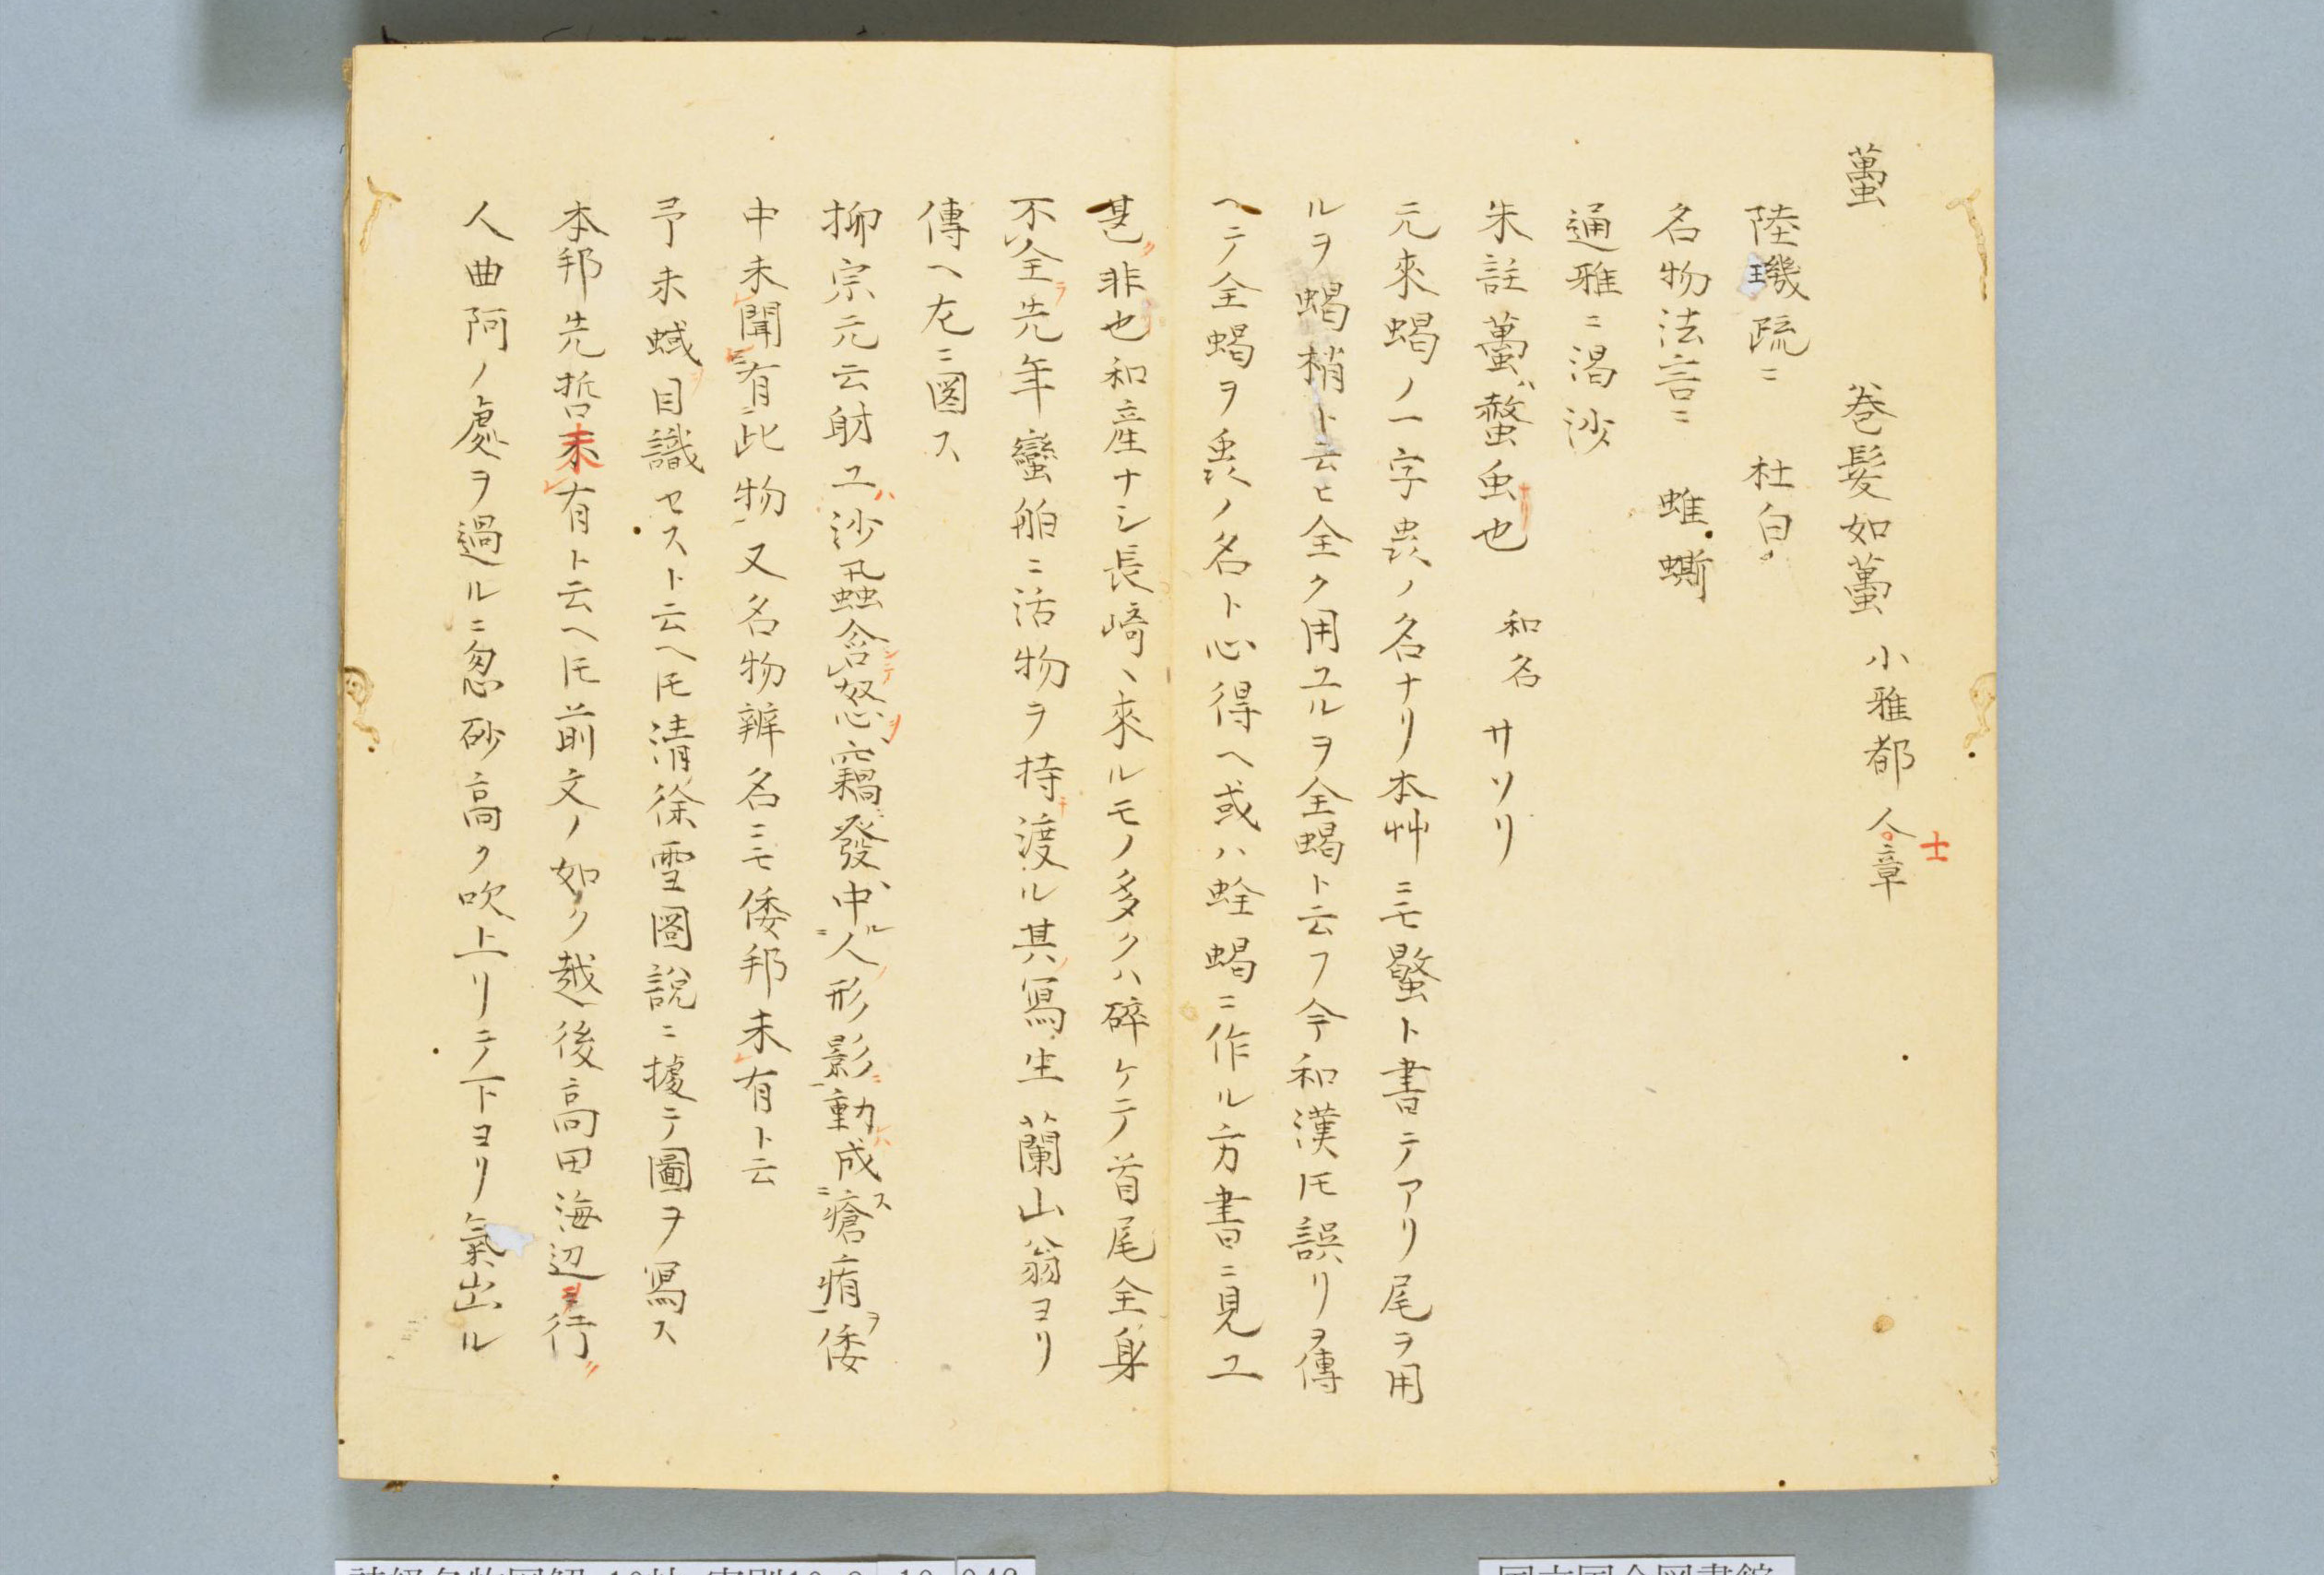 蠆　巻髪如蠆　小雅都人士章
陸璣疏ニ　杜白
名物法言ニ　蜼蟖
通雅ニ濄沙
朱註蠆ハ螫虫也　和名　サソリ
元來蝎ノ一字䖝ノ名ナリ本艸ニモ螌ト書テアリ尾ヲ用
ルヲ蝎梢ト云ヒ全ク用ユルヲ全蝎ト云フ今和漢㪽誤リヲ傳
ヘテ全蝎ヲ䖝ノ名ト心得ヘ或ハ蛤蝎ニ作ル方書ニ見ユ
甚非也和産ナシ長崎ヘ來ルモノ多クハ碎ケテ首尾全身
不全先年蠻舶ニ活物ヲ持渡ル其寫生蘭山翁ヨリ
傳ヘ左ニ圖ス
柳宗元云射工ハ沙蝨含シテ怒ヲ竊發中ルニ人ノ形影ニ動ハ成ス瘡痏ヲ倭
中未聞有此物又名物辨名ニモ倭邦未有ト云
予未蜮目識セスト云ヘ𪜈清徐雪圖説ニ據テ圖ヲ寫ス
本邦先哲未有ト云ヘ𪜈前文ノ如ク越後高田海辺ヲ行
人曲阿ノ處ヲ過ルニ忽砂高ク吹上リテ下ヨリ氣出ル